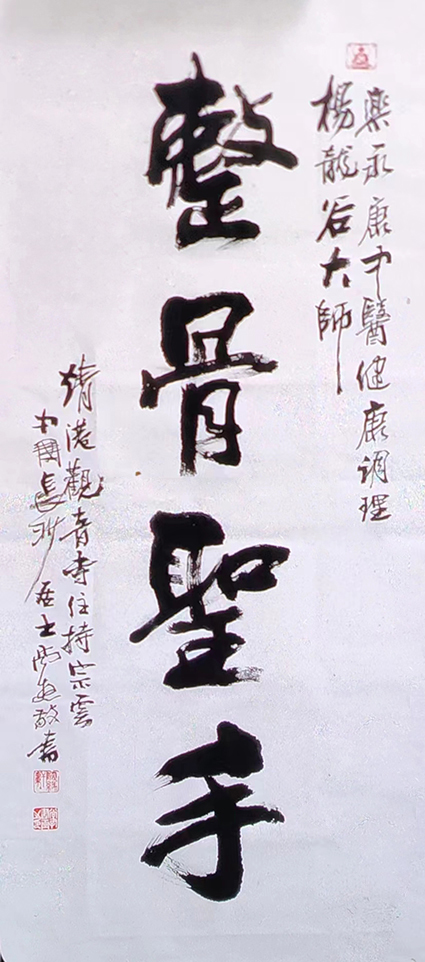 樂永康中醫健康调理
楊龍谷大师
整骨聖手
靖港觀音寺住持宗雲
中國長沙居士 敬書